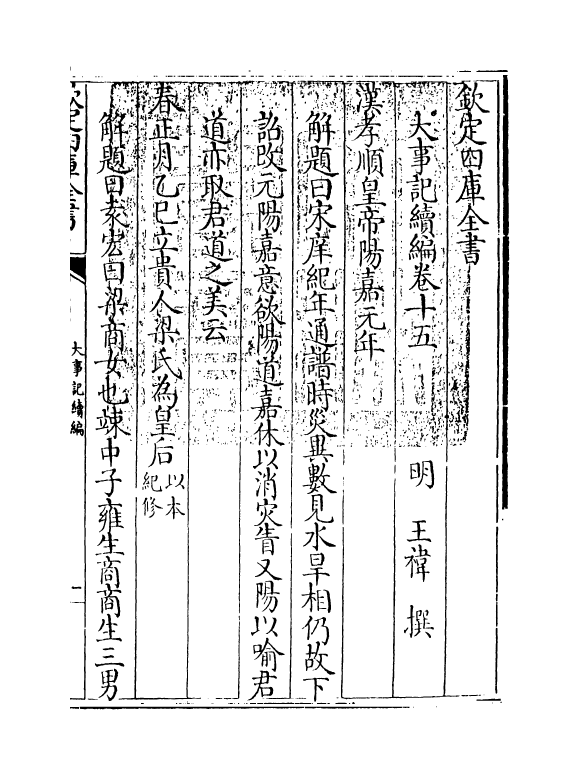 欽定四庫全書
大事記續編卷十五　明　王禕　撰
漢孝順皇帝陽嘉元年
解題曰宋庠紀年通譜時災異數見水旱相仍故下
詔改元陽嘉意欲陽道嘉休以消灾眚又陽以喻君
道亦取君道之美云
春正月乙巳立貴人梁氏為皇后以本紀修
解題曰袁宏曰梁商女也竦中子雍生商商生三男
欽定四庫全書
大事記續編
一